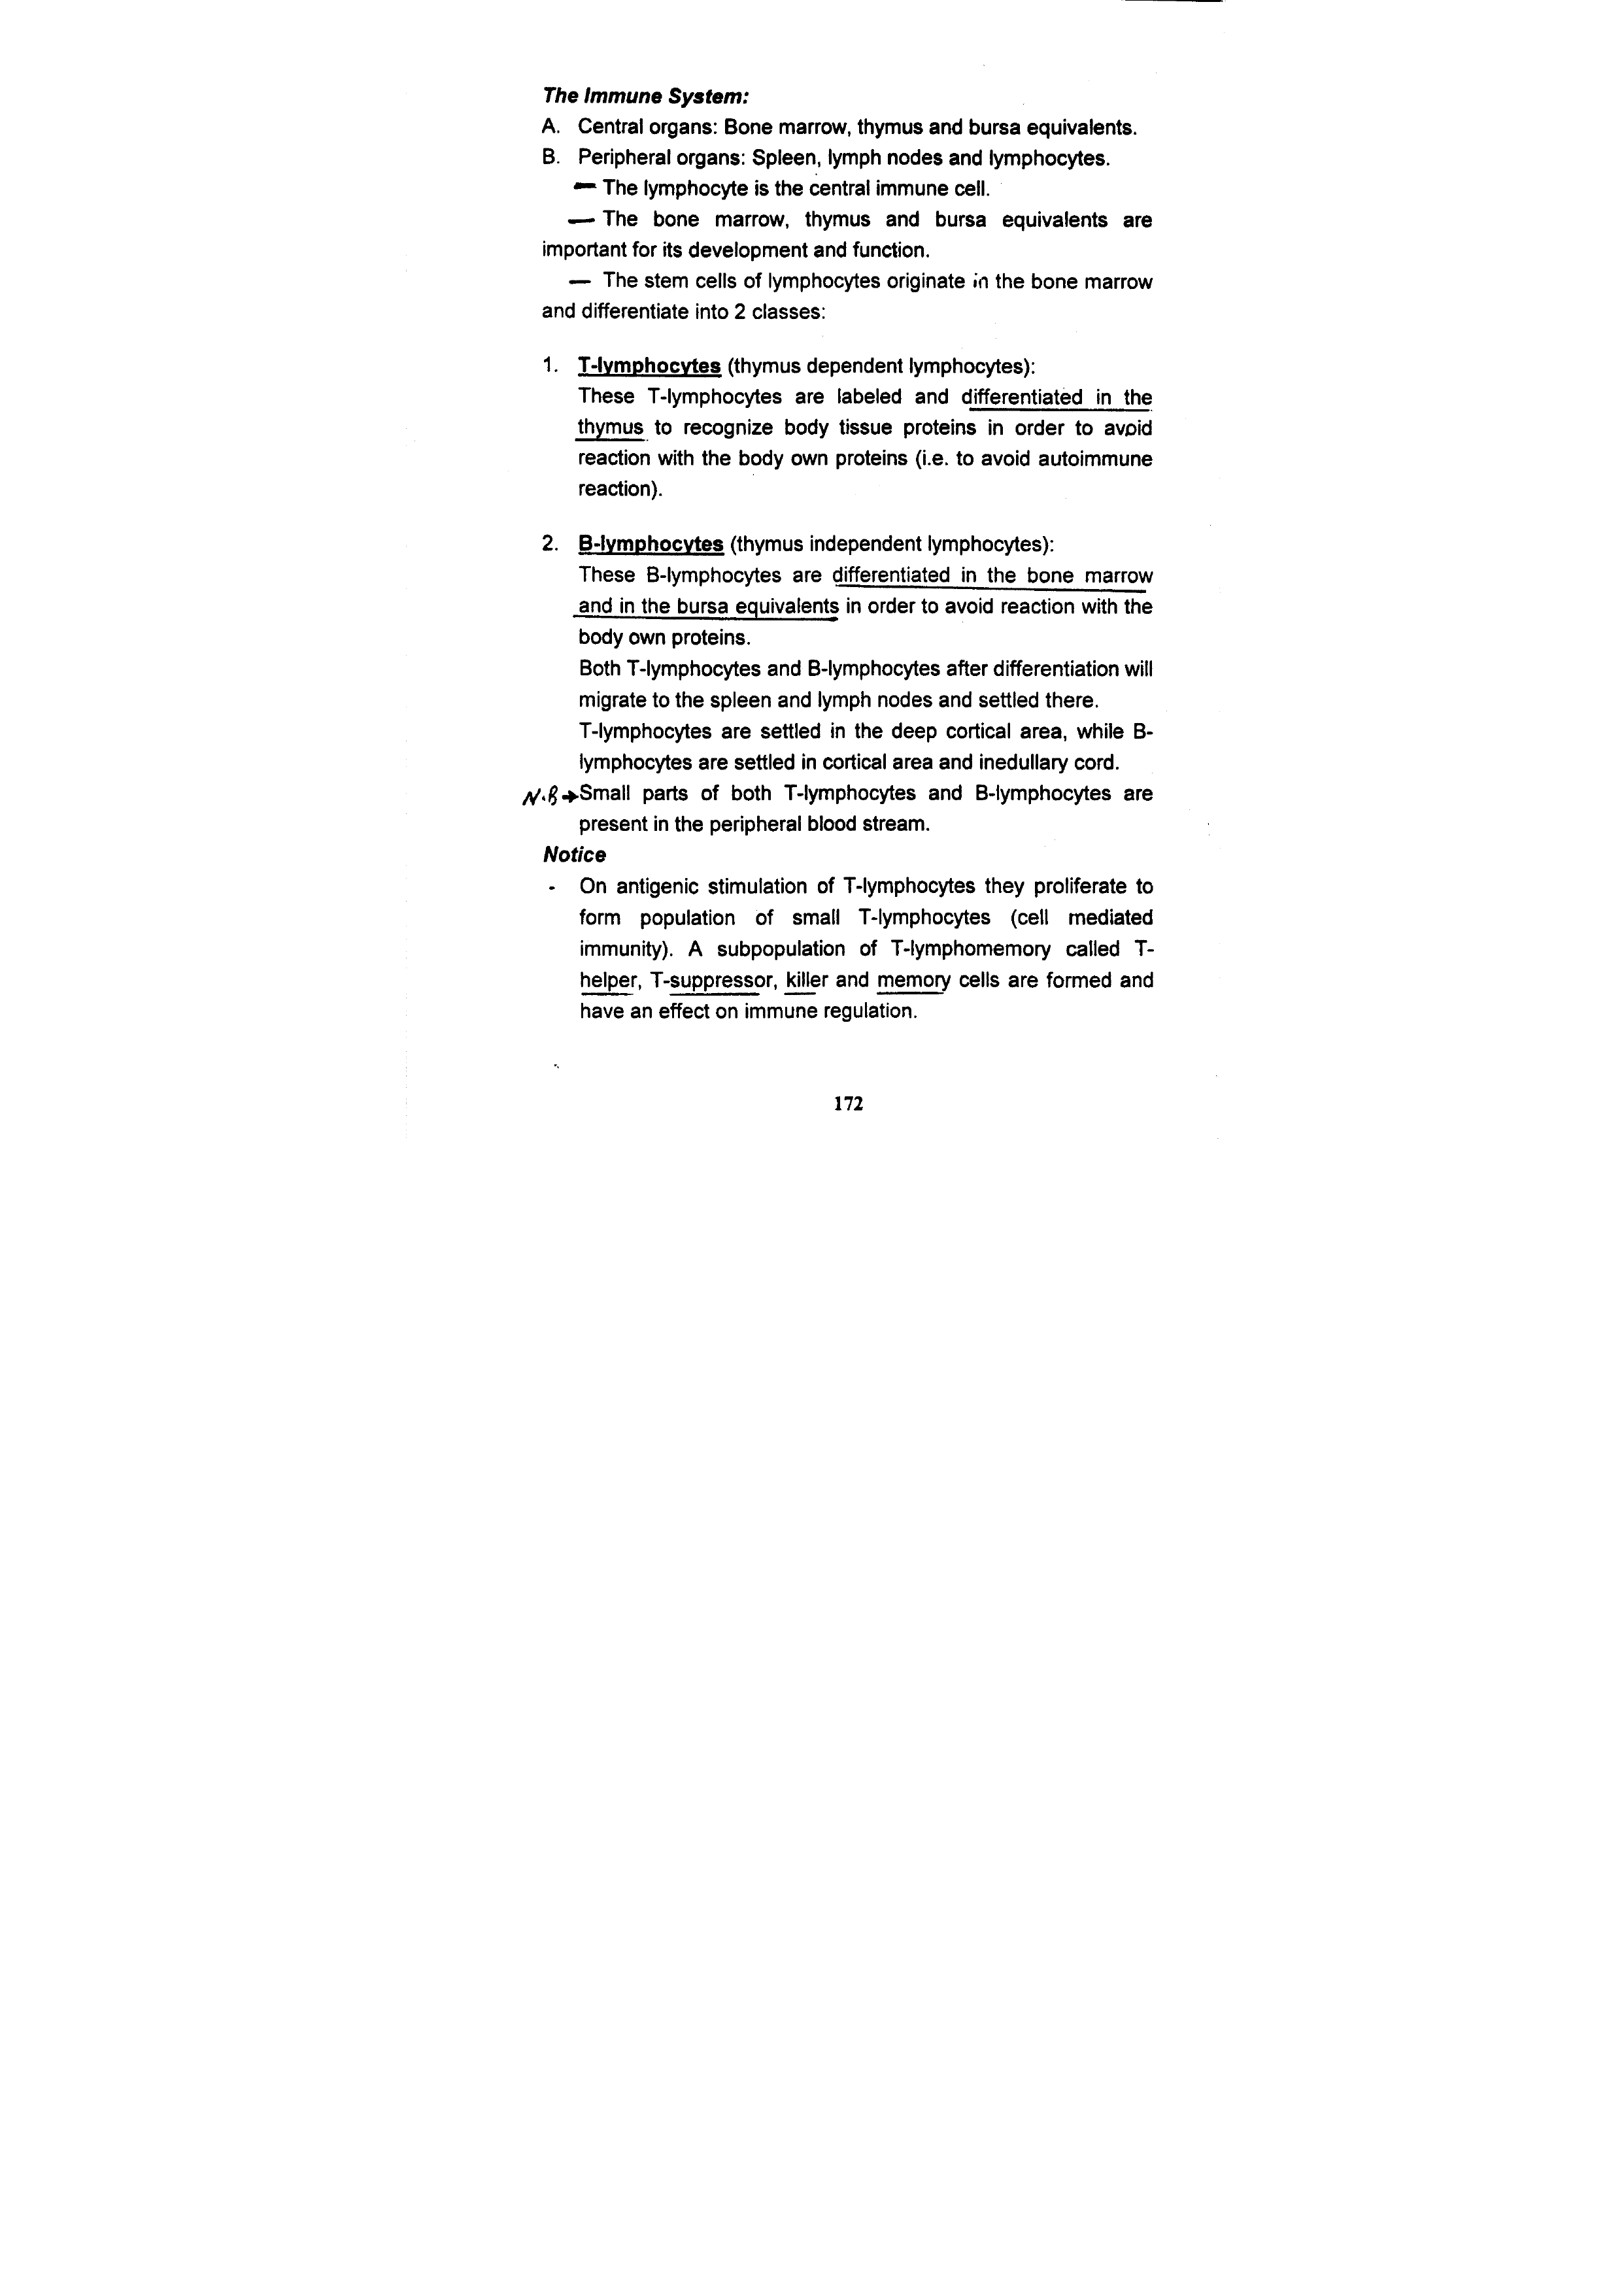 The Immune System:
A. Central organs: Bone marrow, thymus and bursa equivalents.
B. Peripheral organs: Spleen, lymph nodes and lymphocytes.
— The lymphocyte is the central immune cell.
— The bone marrow, thymus and bursa equivalents are
important for its development and function.
— The stem cells of lymphocytes originate in the bone marrow
and differentiate into 2 classes:
1. T-lymphocytes (thymus dependent lymphocytes):
These T-lymphocytes are labeled and differentiated in the
thymus to recognize body tissue proteins in order to avoid
reaction with the body own proteins (i.e. to avoid autoimmune
reaction).
2. B-lymphocytes (thymus independent lymphocytes):
These B-lymphocytes are differentiated in the bone marrow
and in the bursa equivalents in order to avoid reaction with the
body own proteins.
Both T-lymphocytes and B-lymphocytes after differentiation will
migrate to the spleen and lymph nodes and settled there.
T-lymphocytes are settled in the deep cortical area, while B-
lymphocytes are settled in cortical area and inedullary cord.
N.B → Small parts of both T-lymphocytes and B-lymphocytes are
present in the peripheral blood stream.
Notice
- On antigenic stimulation of T-lymphocytes they proliferate to
form population of small T-lymphocytes (cell mediated
immunity). A subpopulation of T-lymphomemory called T-
helper, T-suppressor, killer and memory cells are formed and
have an effect on immune regulation.
172